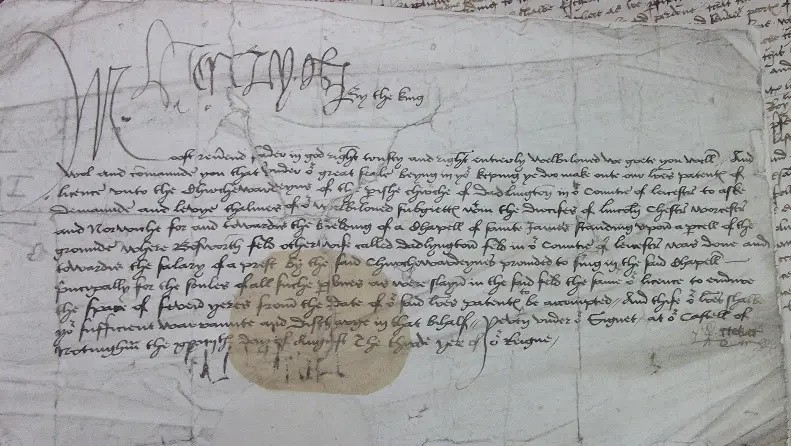 Henry R
By the king
Moost reverend fader in god right trusty and right entierly welbeloved we grete you well. And
wol and comaunde you that under oʳ great seale beyng in yoʳ keping ye do make oute our lr̃es patentes of
licence unto the Chirchewardeyns of the pisshe chirche of dadlington in oʳ Countie of leicestr to aske
demaunde and levye thalmes of oʳ welbeloved subgiettes wᵗin the dioceses of lincoln Chestr worcestr
and Norwiche for and towardes the bielding of a Chapell of sainte James standing upon a pcell of the
grounde where Bosworth feld otherwise called dadlyngton feld in oʳ Countie of leicestr was done and
towardes the salary of a prest by the said Chirchewardeyns provided to sing in the said Chapell
principally for the soules of all suche psones as were slayn in the said feld the same oʳ licence to endure
the space of seven yeres from the date of oʳ said lr̃es patentes to be accompted. And thise oʳ lr̃es shalbe
yoʳ sufficient warraunte and discharge in that behalf. Yeven under oʳ Signet at oʳ Castell of
Notingham the day of August The thirde yere of oʳ Reigne.